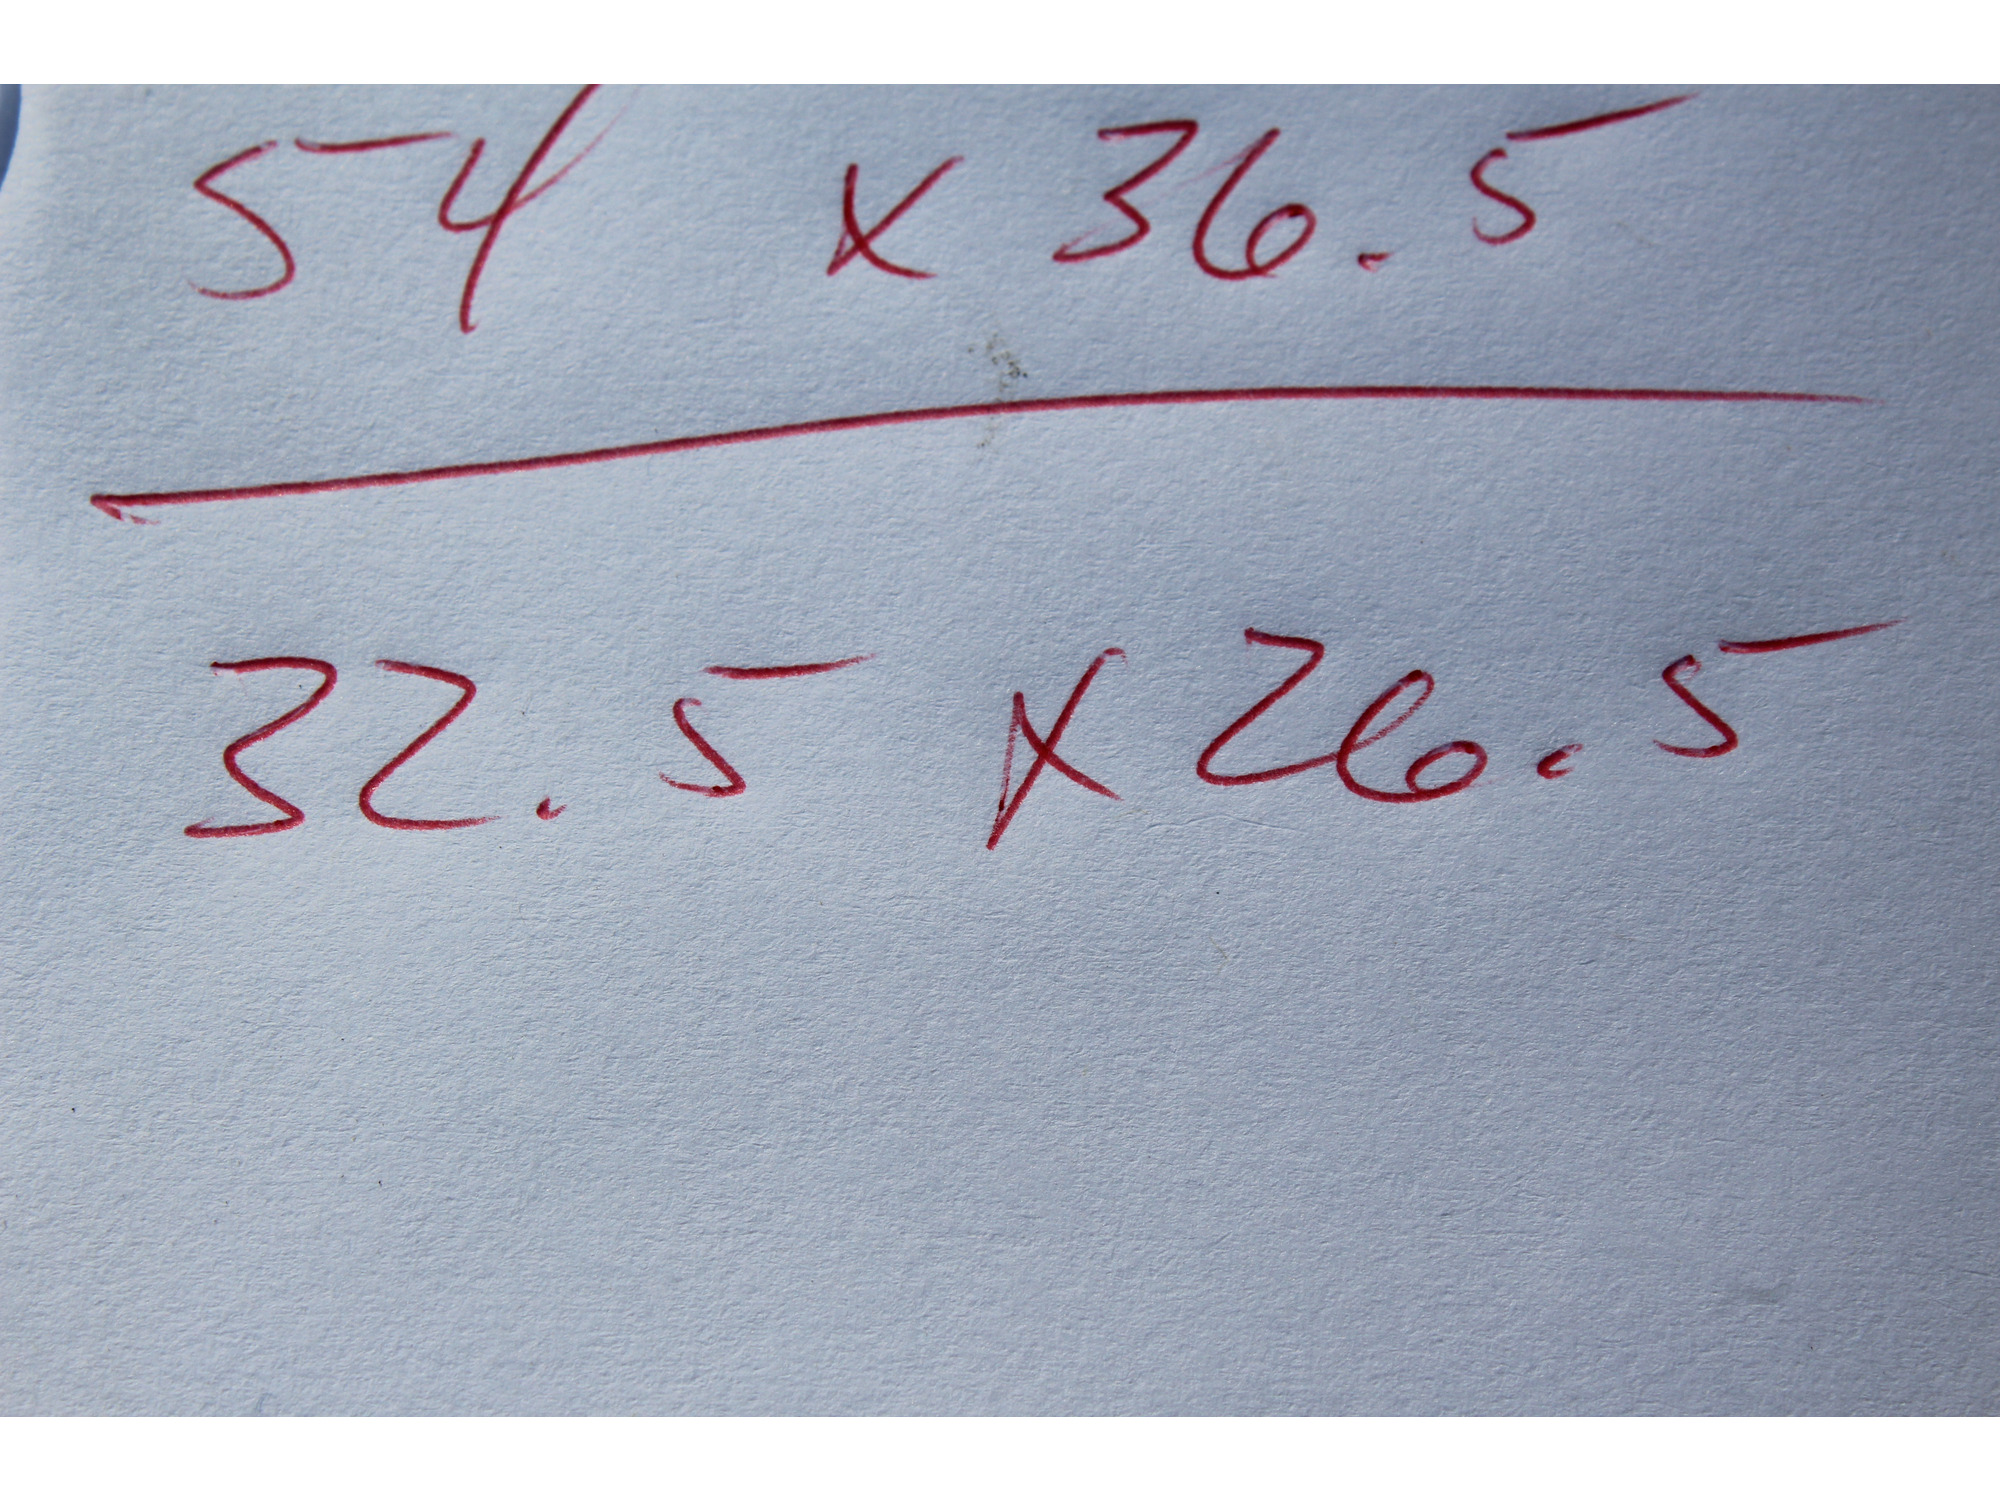 54 x 36.5
32.5 x 26.5